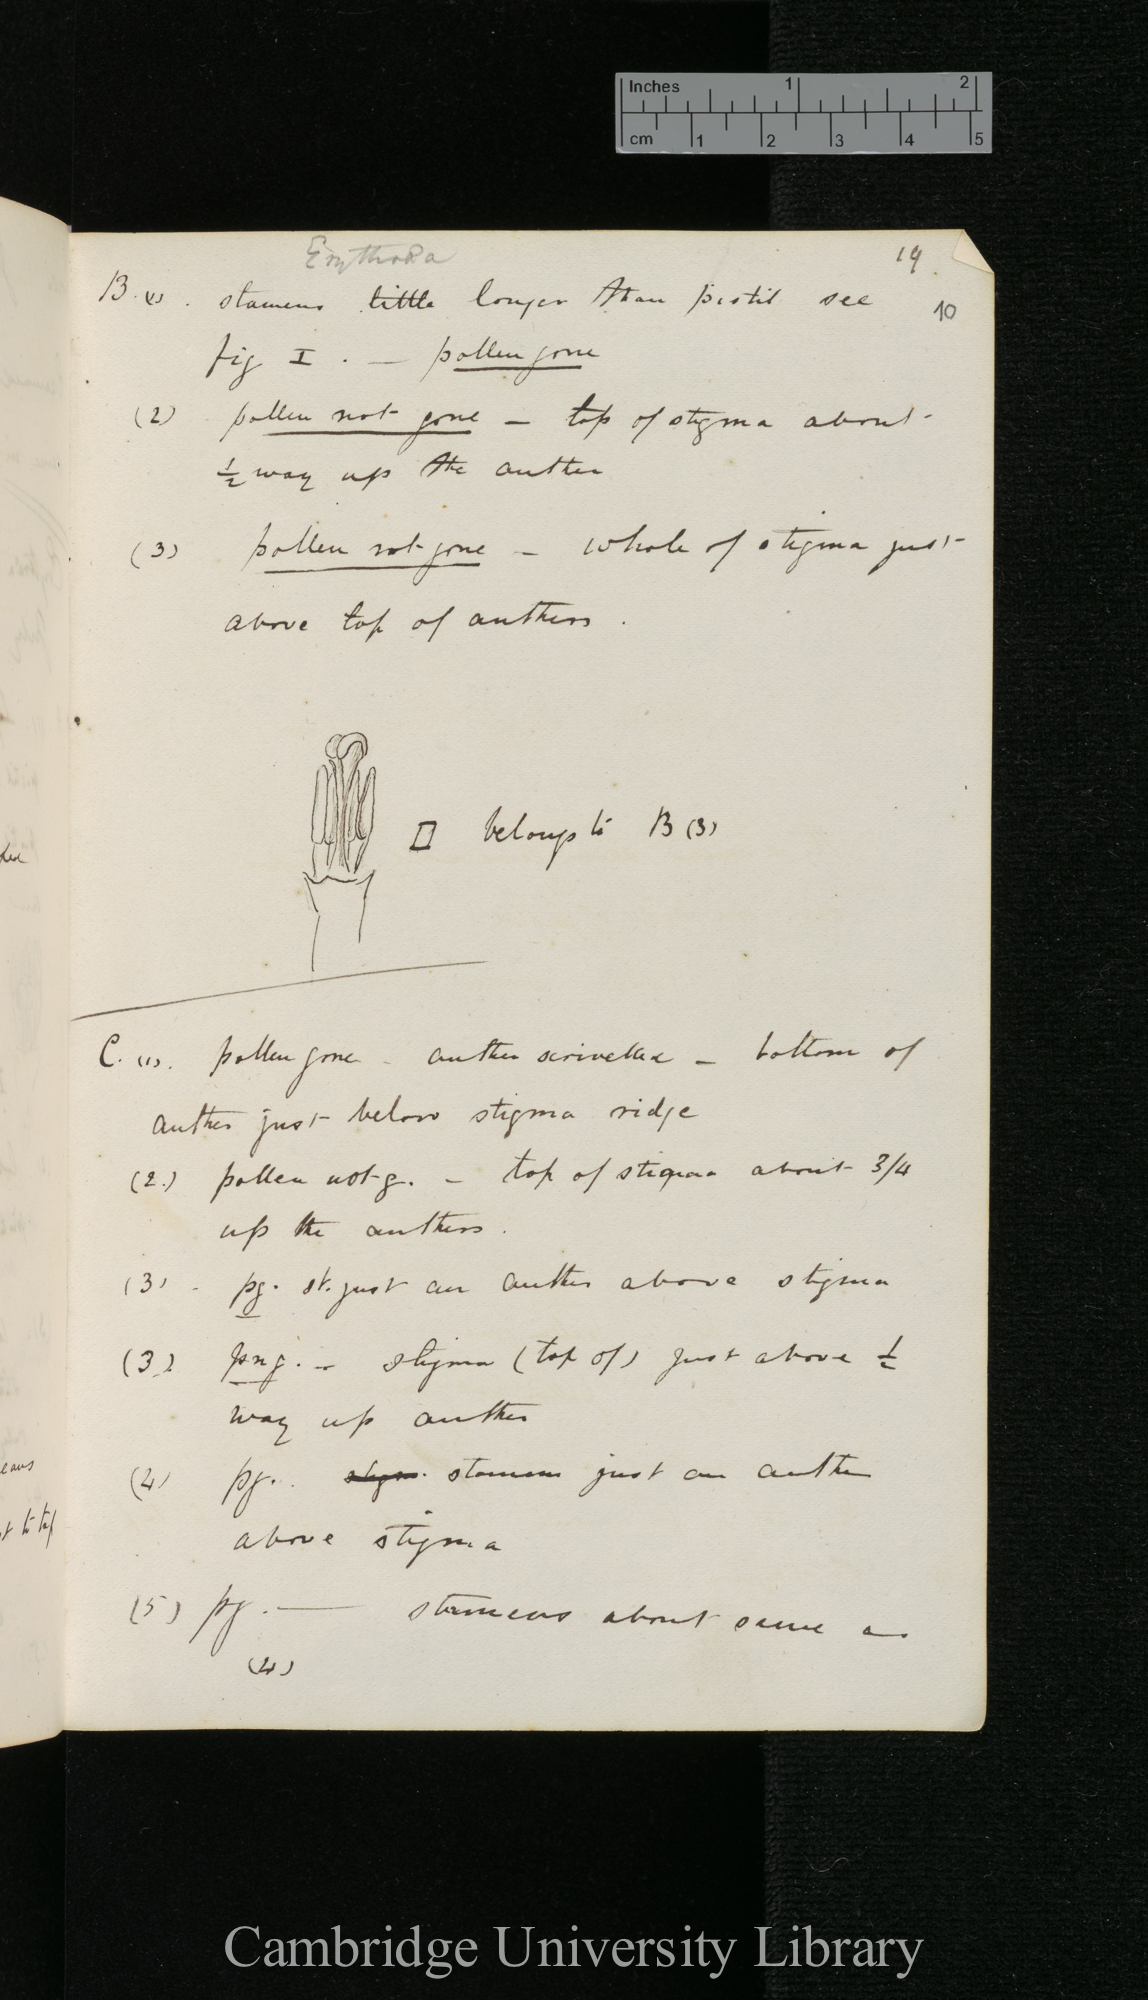 Inches 1 2
cm 1 2 3 4 5
Erythraea
19
10
B. (1). stamens little longer than pistil see
fig I. — pollen gone
(2) pollen not gone — top of stigma about
½ way up the anther
(3) pollen not gone — whole of stigma just
above top of anthers.
II belongs to B (3)
C. (1). pollen gone - anther scrivelled — bottom of
anther just below stigma ridge
(2.) pollen not g. — top of stigma about 3/4
up the anthers.
(3) - pg. st. just an anther above stigma
(3) png. — stigma (top of) just above ½
way up anther
(4) pg. stigm. stamens just an anther
above stigma
(5) pg. — stamens about same as
(4)
eans
t to top
Cambridge University Library